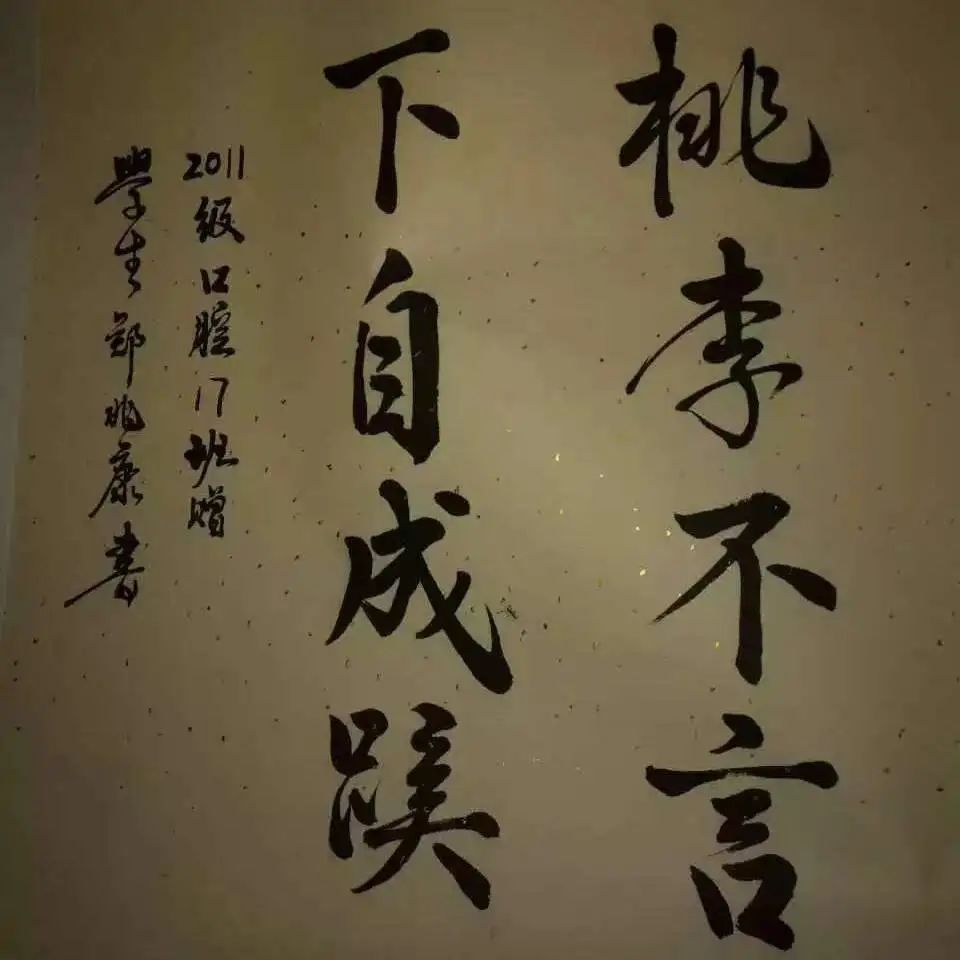 桃李不言
下自成蹊
2011级口腔17班赠
學生郑兆康書